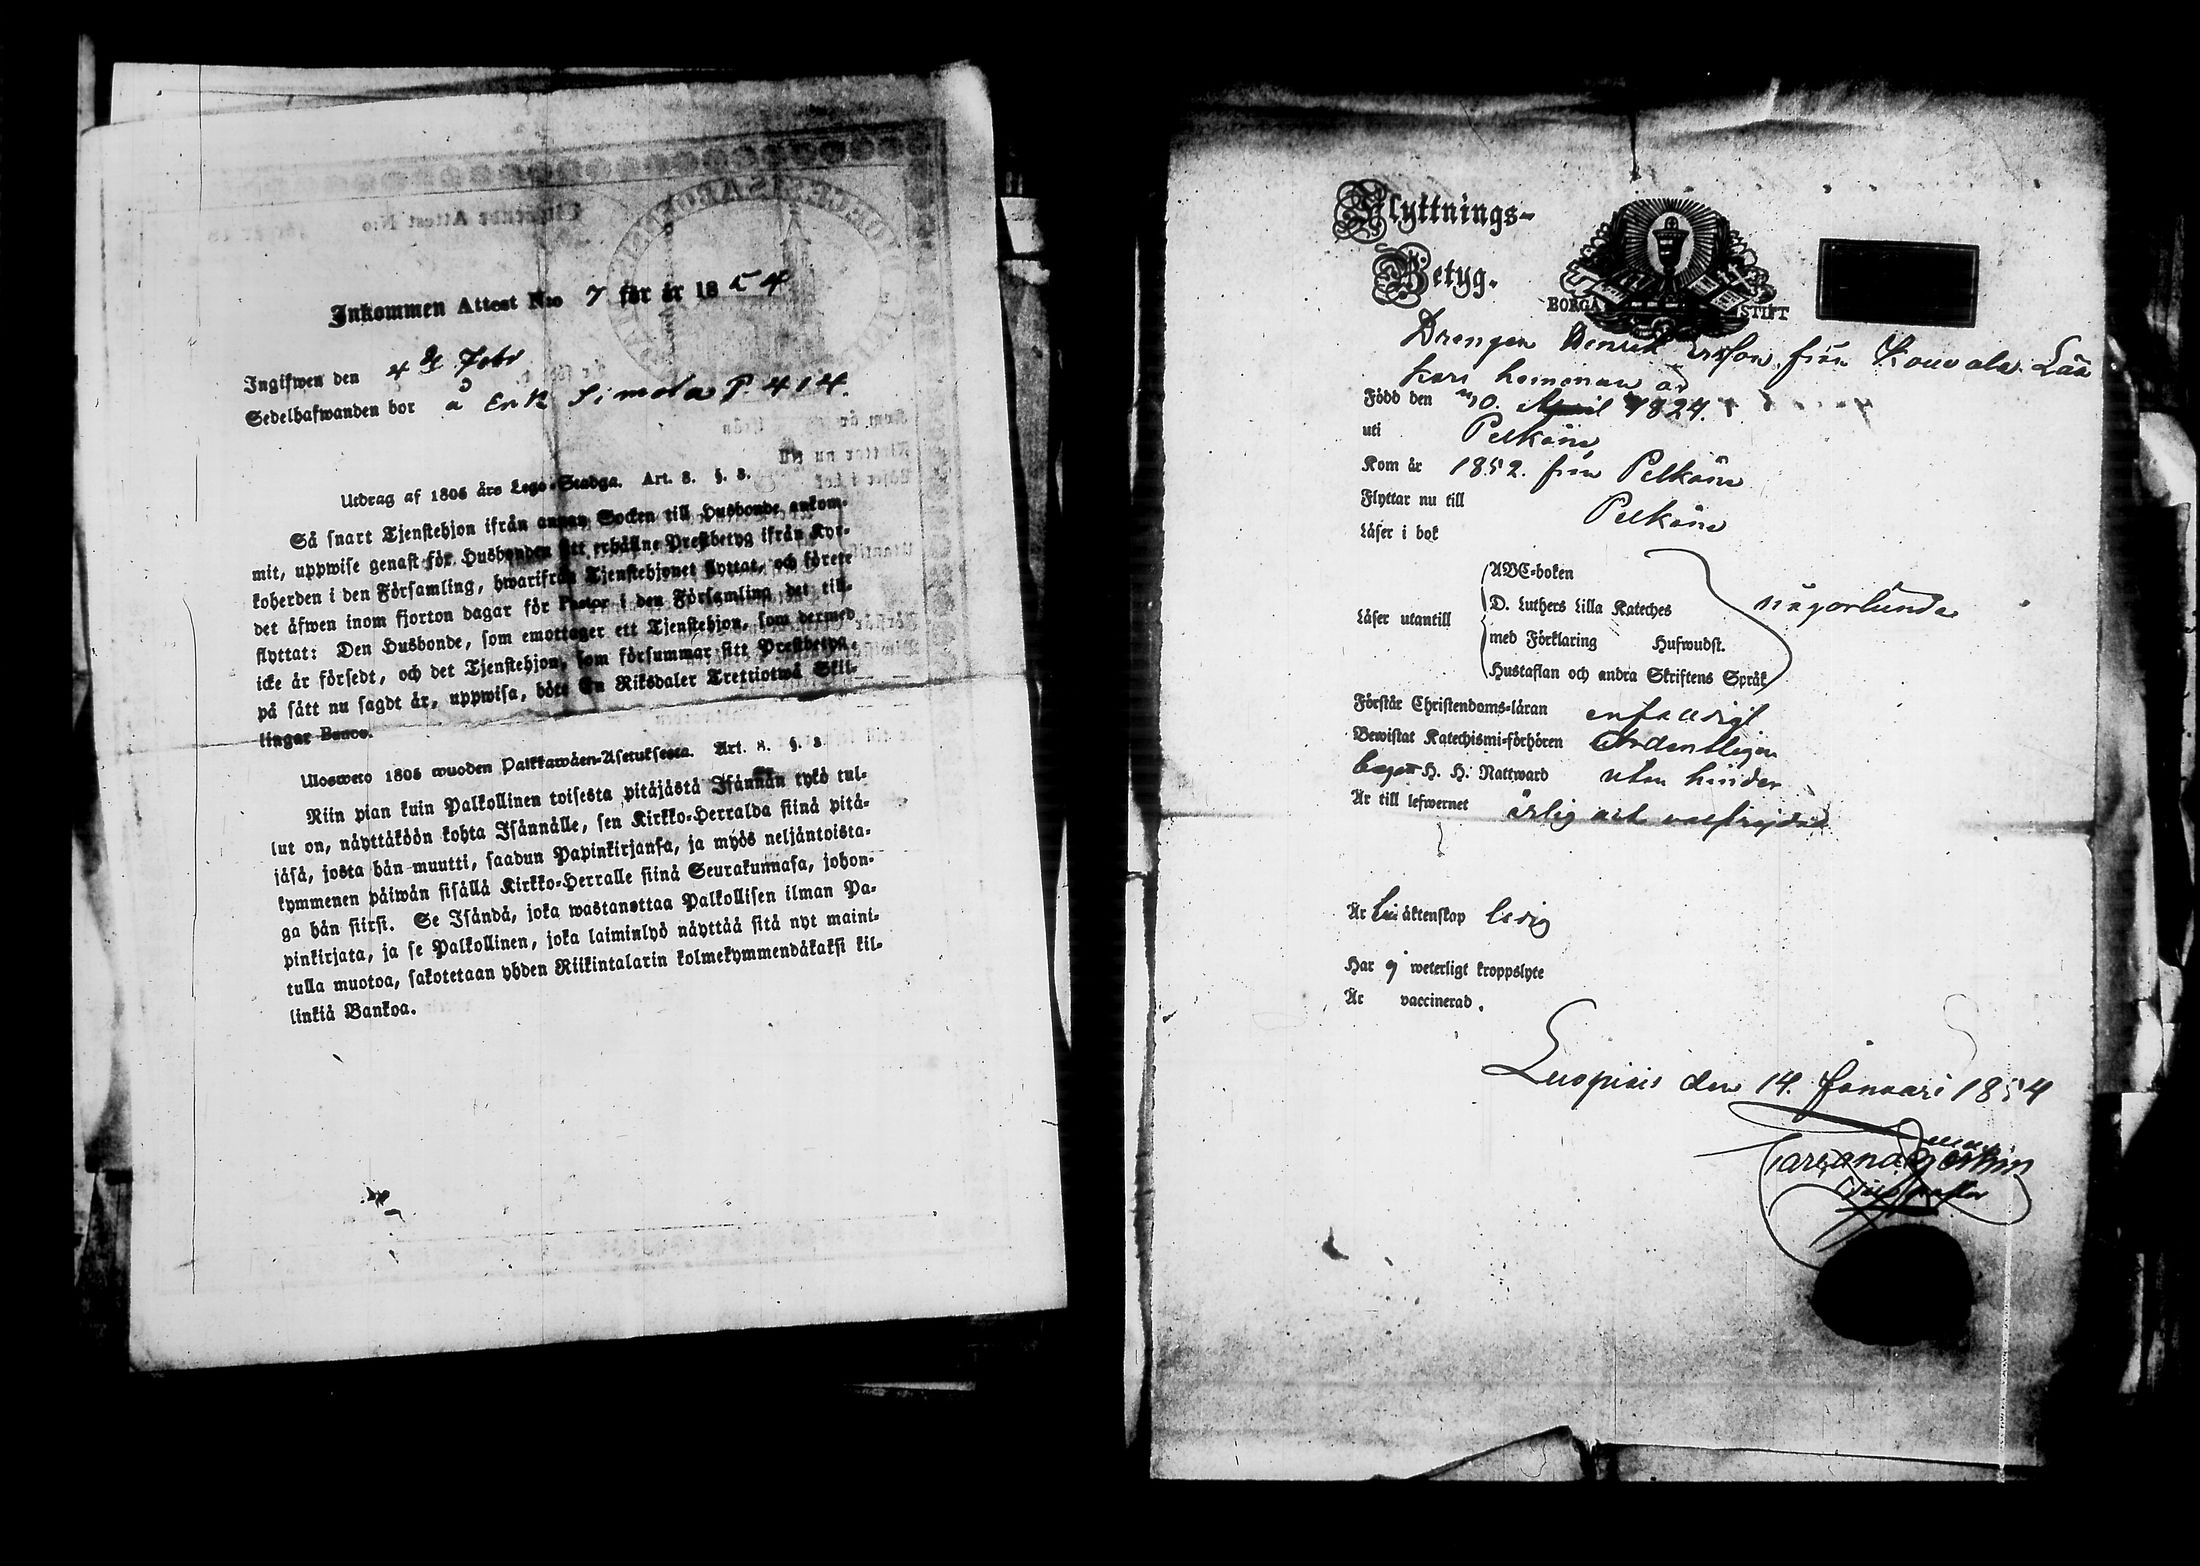 Inkommen Attest N:o 7 för år 1854
Ingifwen den 4 Febr
Sedelhafwanden bor å Erik Simola P. 414.
Utdrag af 1805 års Lego-Stadga. Art. 8. §. 3.
Så snart Tjenstehjon ifrån annan Socken till Husbonde ankom-
mit, uppwise genast för Husbonden sitt erhållne Prestbetyg ifrån Kyr-
koherden i den Församling, hwarifrån Tjenstehjonet flyttat, och förete
det äfwen inom fjorton dagar för Pastor i den Församling det till-
flyttat: Den Husbonde, som emottager ett Tjenstehjon, som dermed
icke är försedt, och det Tjenstehjon, som försummar sitt Prestbetyg,
på sätt nu sagdt är, uppwisa, böte En Riksdaler Trettiotwå Skil-
lingar Banco.
Ulosweto 1805 wuoden Palkkawäen-Asetuksesta. Art. 8. §. 3.
Niin pian kuin Palkollinen toisesta pitäjästä Isännän tykö tul-
lut on, näyttäköön kohta Isännälle, sen Kirkko-Herralda siinä pitä-
jäsä, josta hän muutti, saadun Papinkirjansa, ja myös neljäntoista-
kymmenen päiwän sisällä Kirkko-Herralle siinä Seurakunnasa, johon-
ga hän siirsi. Se Isändä, joka wastanottaa Palkollisen ilman Pa-
pinkirjata, ja se Palkollinen, joka laiminlyö näyttää sitä nyt maini-
tulla muotoa, sakotetaan yhden Riikintalarin kolmekymmendäkaksi kil-
linkiä Bankoa.
Flyttnings-
Betyg.
BORGÅ STIFT
Drengen Henrik Ersson från Kouvala Lää
kari hemman är
Född den 30. April 1824.
uti Pelkäne
Kom år 1852. från Pelkäne
Flyttar nu till Pelkäne
Läser i bok
Läser utantill
ABC-boken
D. Luthers Lilla Kateches
med Förklaring Hufwudst.
Hustaflan och andra Skriftens Språk
någorlunda
Förstår Christendoms-läran enfaldigt
Bewistat Katechismi-förhören ordentligen
begått H. H. Nattward utan hinder
Är till lefwernet ärlig och välfrejdad
Är till äktenskap ledig
Har ej weterligt kroppslyte
Är vaccinerad.
Luopiois den 14. Januari 1854